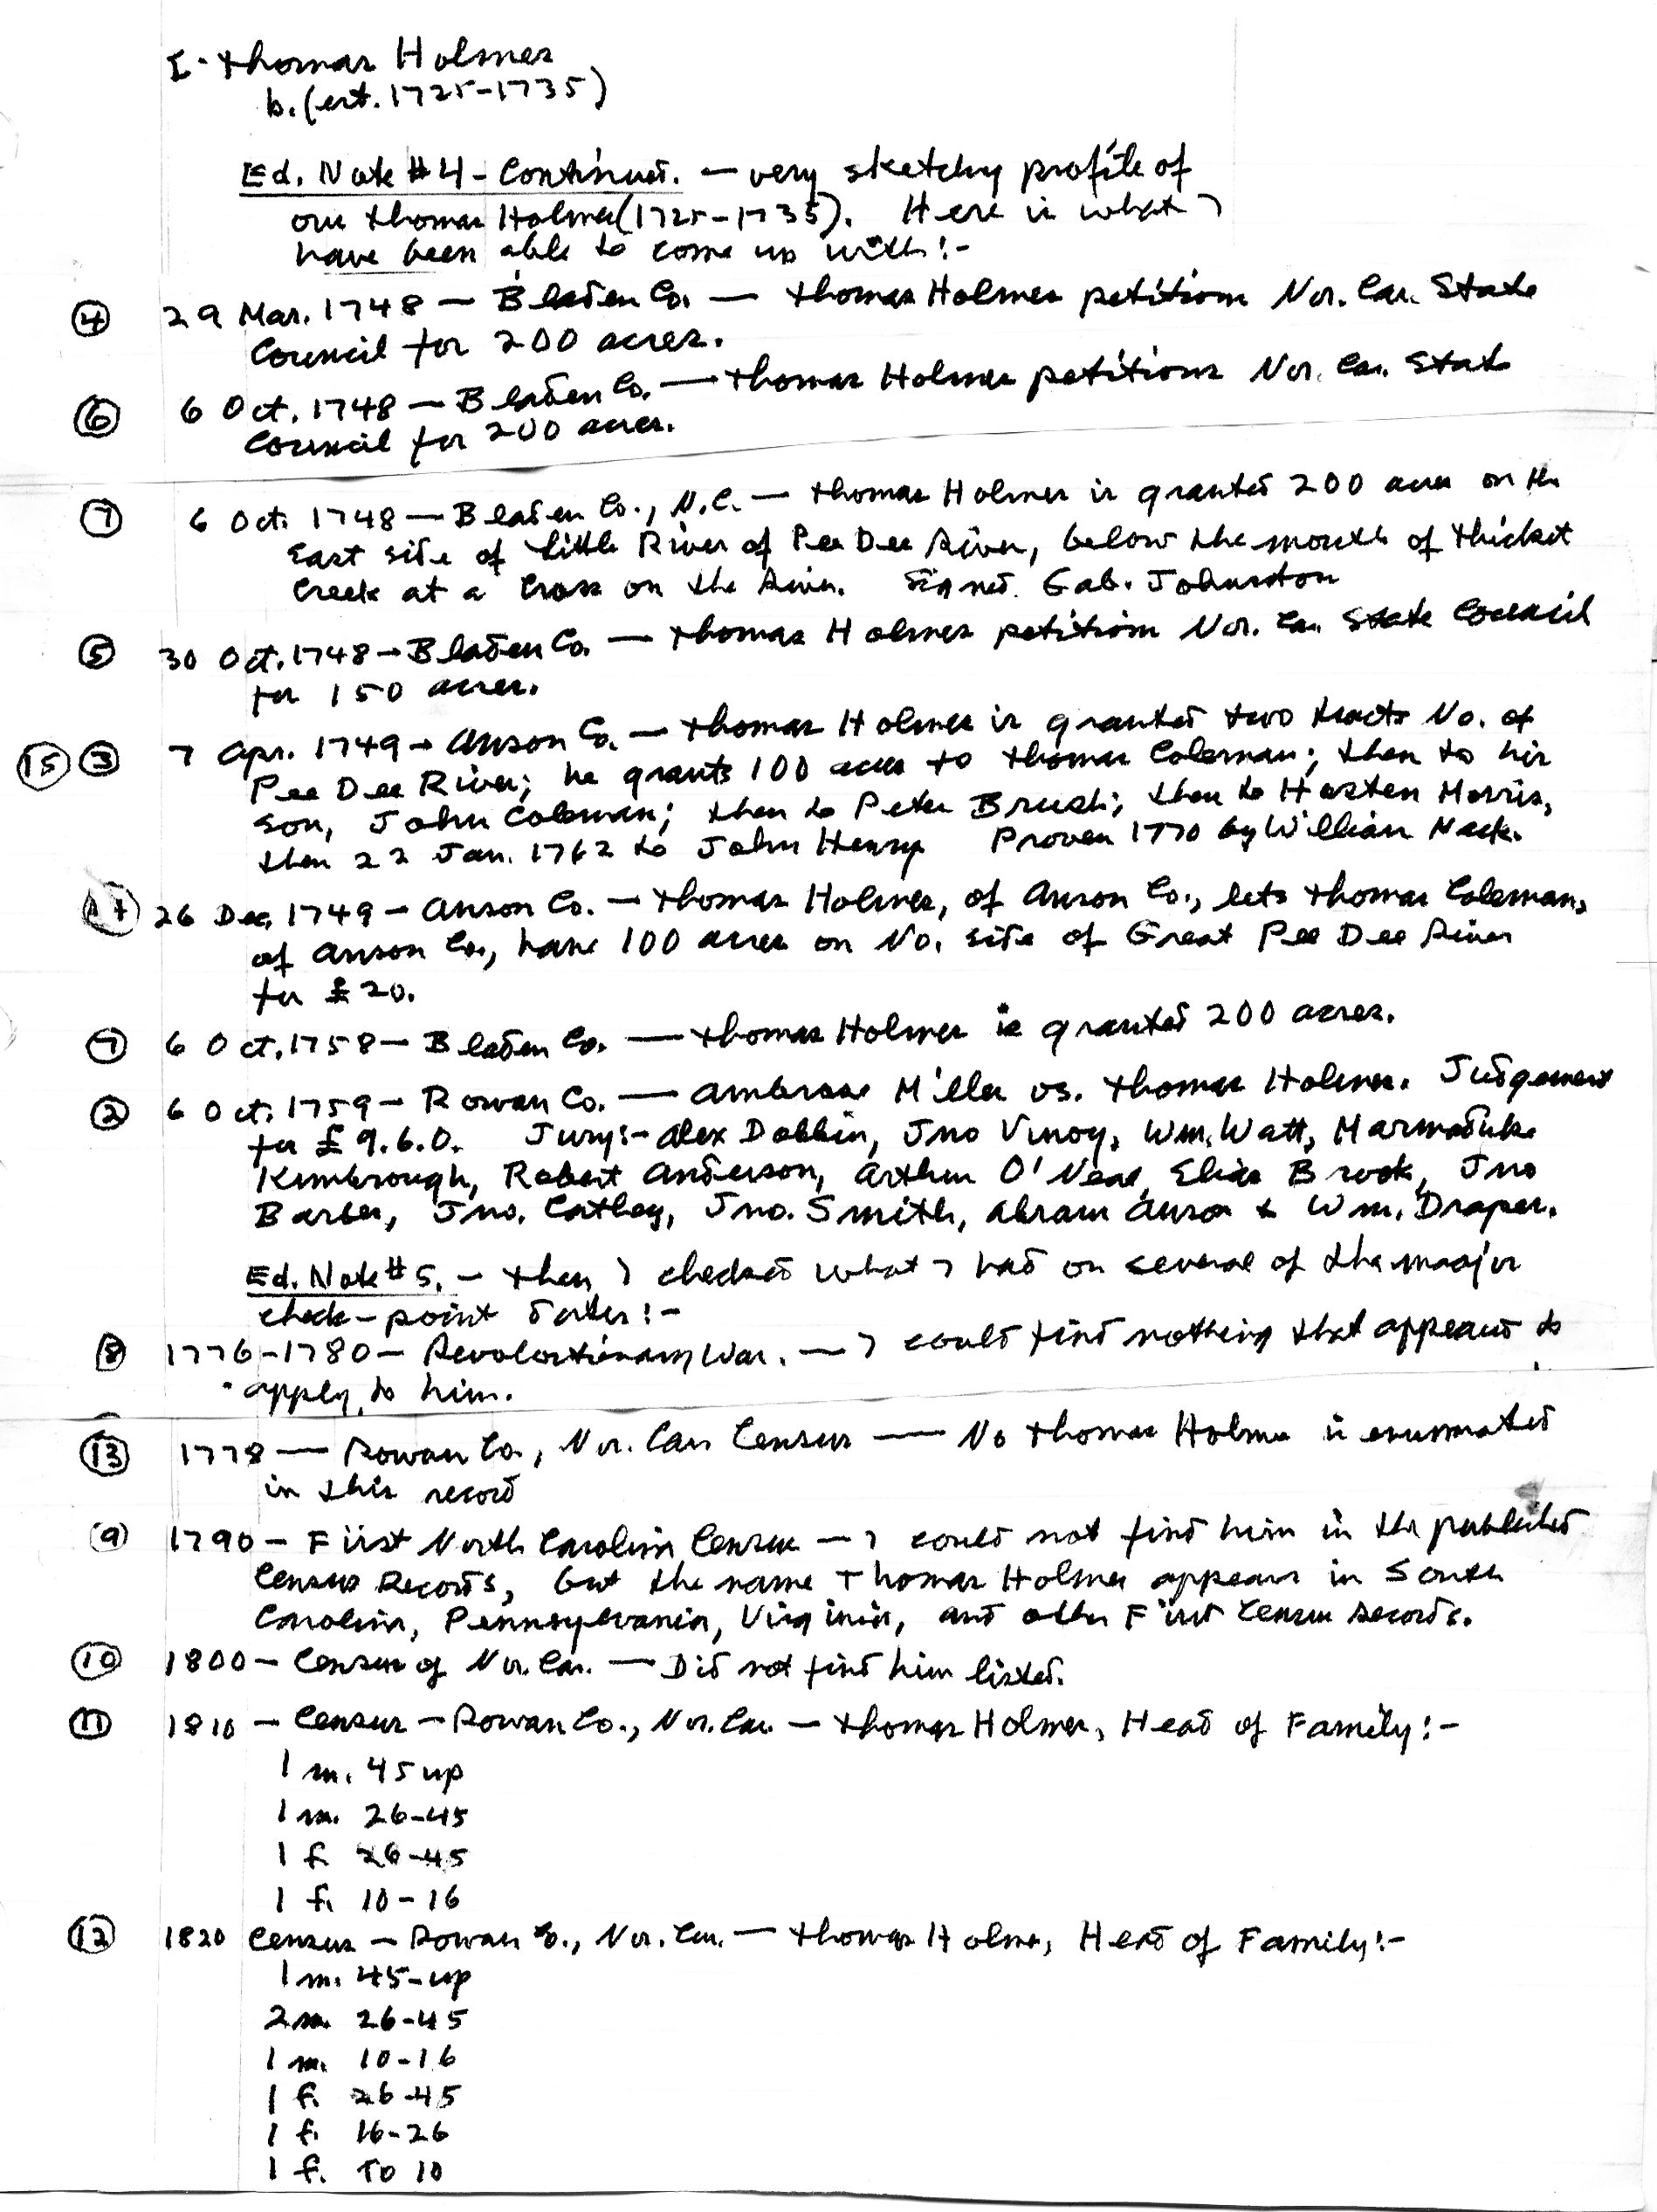 I. Thomas Holmes
b. (est. 1725-1735)
Ed. Note #4 - Continued. — very sketchy profile of
our Thomas Holmes (1725-1735). Here is what I
have been able to come up with:-
④ 29 Mar. 1748 — Bladen Co. — Thomas Holmes petitions Nor. Car. State
Council for 200 acres.
⑥ 6 Oct. 1748 — Bladen Co. — Thomas Holmes petitions Nor. Car. State
Council for 200 acres.
⑦ 6 Oct. 1748 — Bladen Co., N.C. — Thomas Holmes is granted 200 acres on the
East side of Little River of Pee Dee River, below the mouth of Thicket
Creek at a Cross on the River. Signed. Gab. Johnston
⑤ 30 Oct. 1748 - Bladen Co. — Thomas Holmes petitions Nor. Car. State Council
for 150 acres.
⑮ ③ 7 Apr. 1749 - Anson Co. — Thomas Holmes is granted two tracts No. of
Pee Dee River; he grants 100 acres to Thomas Coleman; then to his
son, John Coleman; then to Peter Brush; then to Hasten Morris,
then 22 Jan. 1762 to John Henry Proven 1770 by William Mack.
26 Dec. 1749 - Anson Co. — Thomas Holmes, of Anson Co., lets Thomas Coleman,
of Anson Co., have 100 acres on No. side of Great Pee Dee River
for £20.
⑦ 6 Oct. 1758 - Bladen Co. — Thomas Holmes is granted 200 acres.
② 6 Oct. 1759 - Rowan Co. — Ambrose Miller vs. Thomas Holmes. Judgement
for £9.6.0. Jury:- Alex Dobbin, Jno Vinoy, Wm. Watt, Marmaduke
Kimbrough, Robert Anderson, Arthur O'Neal, Elias Brook, Jno
Barber, Jno. Cathey, Jno. Smith, Abram & Wm. Draper.
Ed. Note #5. - Then, I checked what I had on several of the major
check-point dates:-
⑧ 1776-1780 - Revolutionary War. — I could find nothing that appeared to
apply to him.
⑬ 1778 — Rowan Co., Nor. Car. Census — No Thomas Holmes is enumerated
in this record
(9) 1790 - First North Carolina Census — I could not find him in the published
Census Records, but the name Thomas Holmes appears in South
Carolina, Pennsylvania, Virginia, and other First Census Records.
⑩ 1800 - Census of Nor. Car. — Did not find him listed.
⑪ 1810 - Census - Rowan Co., Nor. Car. — Thomas Holmes, Head of Family:-
1 m. 45 up
1 m. 26-45
1 f. 26-45
1 f. 10-16
⑫ 1820 Census - Rowan Co., Nor. Car. — Thomas Holmes, Head of Family:-
1 m. 45-up
2 m. 26-45
1 m. 10-16
1 f. 26-45
1 f. 16-26
1 f. To 10